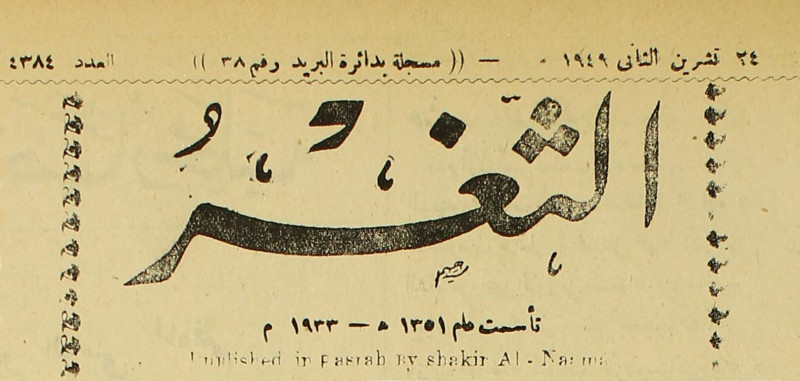 ٢٤ تشرين الثانى ١٩٤٩ — (( مسجلة بدائرة البريد رقم ٣٨ )) العدد ٤٣٨٤
الثَّغْرُ
تأسست عام ١٣٥١ ه — ١٩٣٣ م
Published in Basrah By shakir Al -